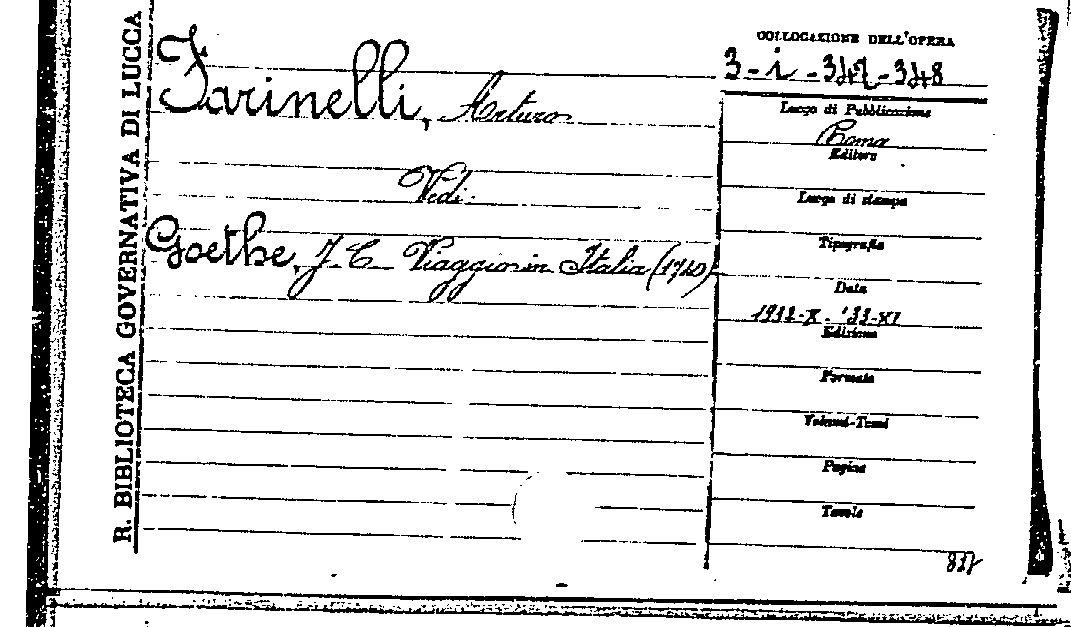 R. BIBLIOTECA GOVERNATIVA DI LUCCA
Farinelli, Arturo
Vedi:
Goethe, J. C. Viaggio in Italia (1740)
COLLOCAZIONE DELL'OPERA
3-i-347-348
Luogo di Pubblicazione
Roma
Editore
Luogo di stampa
Tipografia
Data
1932-X-'33-XI
Edizione
Formato
Volumi-Tomi
Pagine
Tavole